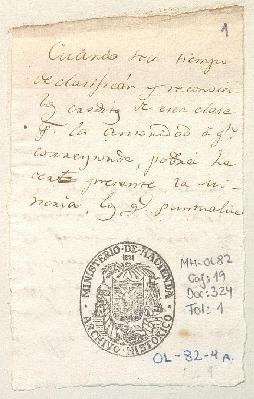 1
Cuando sea tiempo
de clasificar y reconocer
los creditos de esta clase
qe. la autoridad á qn.
corresponda, podrá ha
cerse presente la
MINISTERIO-DE-HACIENDA
ARCHIVO HISTORICO
MH-OL82
Caj: 19
Doc: 324
Fol: 1
OL-82-4a